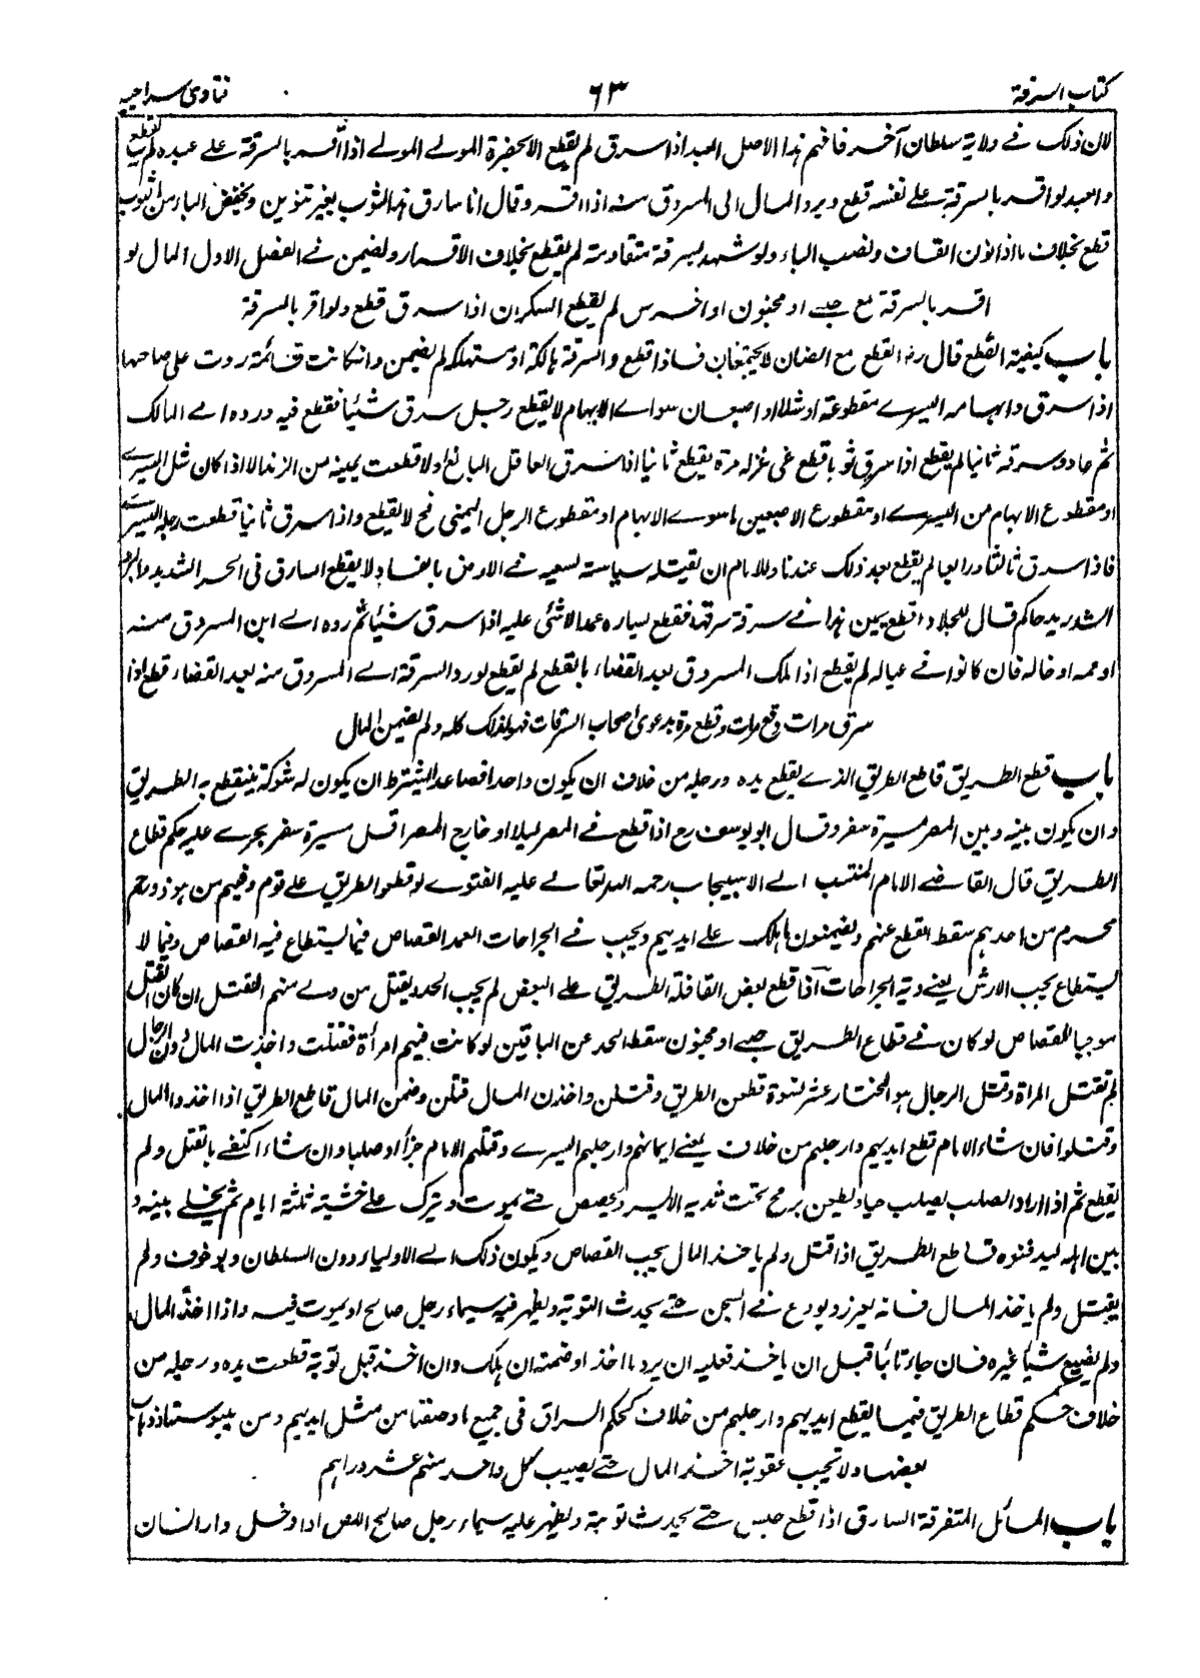 كتاب السرقة ٦٣ فتاوى سراجيه
لان ذلك فے ولاية سلطان آخر فافهم هذا الاصل العبد اذا سرق لم يقطع الا بحضرة المولے المولے اذا أقر بالسرقة علے عبده لم يقطع
والعبد لو اقر بالسرقة علے نفسه قطع ويرد المال الى المسروق منه اذا اقر وقال انا سارق هذا الثوب بغير تنوين وبخفض الباء من الثوب
قطع بخلاف ما اذا نون القاف ونصب الباء ولو شهد بسرقة متقادمة لم يقطع بخلاف الاقرار ويضمن فے الفصل الاول المال لو
اقر بالسرقة مع صبے او مجنون او اخرس لم يقطع السكران اذا سرق قطع ولو اقر بالسرقة
باب كيفية القطع قال رضـ القطع مع الضمان لا يجتمعان فاذا قطع والسرقة هالكة او مستهلكة لم يضمن وان كانت قائمة ردت على صاحبها
اذا سرق وابهامه اليسرے مقطوعة او شلاء او اصبعان سواے الابهام لا يقطع رجل سرق شيئا فقطع فيه ورده الے المالك
ثم عاد وسرقه ثانيا لم يقطع اذا سرق ثوبا قطع فى غزله مرة يقطع ثانيا اذا سرق العاقل البالغ اولا قطعت يمينه من الزند الا اذا كان شل اليسرے
او مقطوع الابهام من اليسرے او مقطوع الاصبعين ما سوے الابهام او مقطوع الرجل اليمنى فح لا يقطع واذا سرق ثانيا قطعت رجله اليسرے
فاذا سرق ثالثا ورابعا لم يقطع بعد ذلك عندنا وللامام ان يقتله سياسة لسعيه فے الارض بالفساد ولا يقطع السارق فى الحر الشديد والبرد
الشديد حاكم قال للجلاد اقطع يمين هذا فے سرقة سرقها فقطع يساره عمدا لا شئى عليه اذا سرق شيئا ثم رده الے ابن المسروق منه
او عمه او خاله فان كانوا فے عياله لم يقطع اذا ملك المسروق بعد القضاء بالقطع لم يقطع لو رد السرقة الے المسروق منه بعد القضاء قطع اذا
سرق مرات وقطع مرة بدعوى اصحاب السرقات فهو لذلك كله ولم يضمن المال
باب قطع الطريق قاطع الطريق الذے يقطع يده ورجله من خلاف ان يكون واحدا فصاعدا يشترط ان يكون له شوكة ينقطع به الطريق
وان يكون بينه وبين المصر مسيرة سفر وقال ابو يوسف رح اذا قطع فے المصر ليلا او خارج المصر اقل مسيرة سفر يجرے عليه حكم قطاع
الطريق قال القاضے الامام المنتسب الے الاسبيجاب رحمه الله تعالے عليه الفتوے لو قطعوا الطريق علے قوم وفيهم من هو ذو رحم
محرم من احدهم سقط القطع عنهم ويضمنون ما هلك علے ايديهم ويجب فے الجراحات العمد القصاص فيما يستطاع فيه القصاص وفيما لا
يستطاع يجب الارش يعنے دية الجراحات اذا قطع بعض القافلة الطريق علے البعض لم يجب الحد يقتل من ولے منهم القتل ان كان القتل
موجبا للقصاص لو كان فے قطاع الطريق صبے او مجنون سقط الحد عن الباقين لو كانت فيهم امرأة فقتلت واخذت المال دون الرجال
لم تقتل المراة وقتل الرجال هو المختار عشر نسوة قطعن الطريق وقتلن واخذن المال قتلن وضمن المال قاطع الطريق اذا اخذوا المال
وقتلوا فان شاء الامام قطع ايديهم وارجلهم من خلاف يعنے ايمانهم وارجلهم اليسرے وقتلهم الامام جزأ او صلبا وان شاء اكتفے بالقتل ولم
يقطع ثم اذا اراد الصلب يصلب حيا ويطعن برمح تحت ثديه الايسر ويخصص حتے يموت ويترك علے خشبة ثلثة ايام ثم يخلے بينه و
بين اهله ليدفنوه قاطع الطريق اذا قتل ولم ياخذ المال يجب القصاص ويكون ذلك الے الاولياء دون السلطان ولو خوف ولم
يقتل ولم ياخذ المال فانه يعزر ويودع فے السجن حتے يحدث التوبة ويظهر فيه سيماء رجل صالح او يموت فيه واذا اخذ المال
ولم يضيع شيا غيره فان جاء تائبا قبل ان ياخذ فعليه ان يرد ما اخذ او ضمنه ان هلك وان اخذ قبل توبة قطعت يده ورجله من
خلاف حكم قطاع الطريق فيما يقطع ايديهم وارجلهم من خلاف كحكم السراق فى جميع ما وصفنا من مثل ايديهم ومن يبوسها او ذهاب
بعضها ولا تجب عقوبة اخذ المال حتے يصيب كل واحد منهم عشر دراهم
باب المسائل المتفرقة السارق اذا قطع حبس حتے يحدث توبة ويظهر عليه سيماء رجل صالح اللص اذا دخل دار انسان